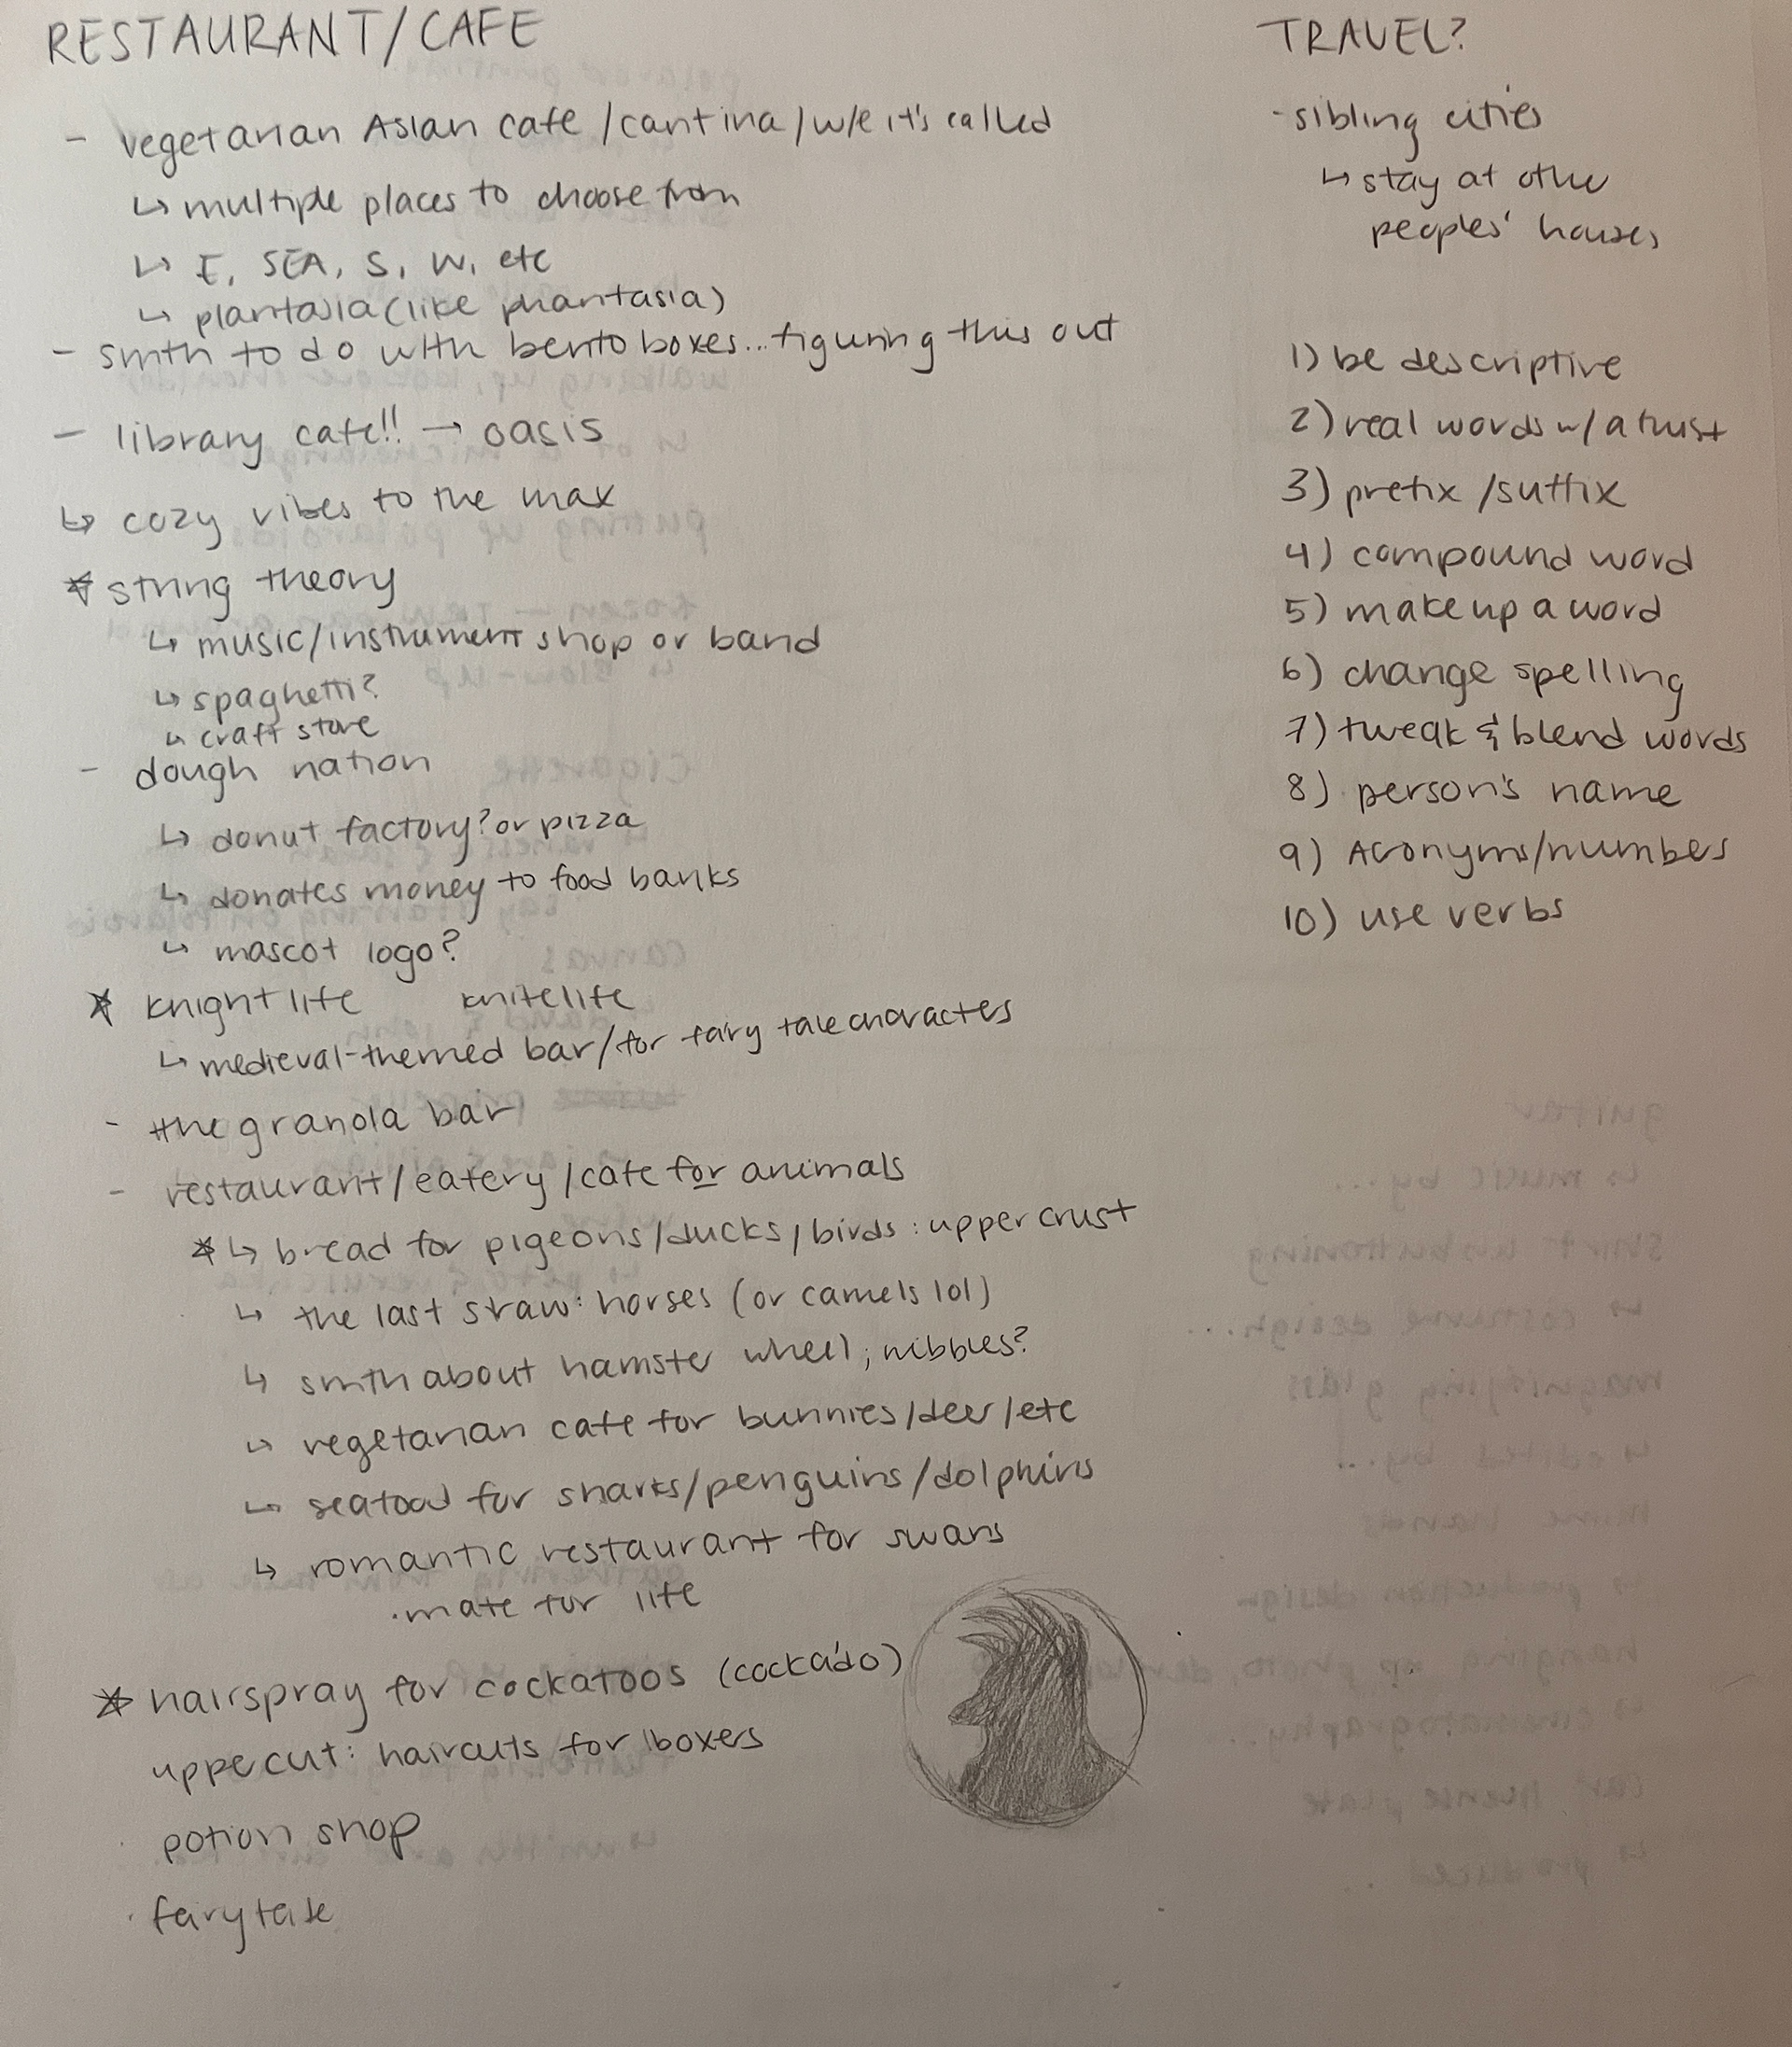 RESTAURANT/CAFE
- vegetarian Asian cafe /cantina/w/e it's called
↳ multiple places to choose from
↳ E, SEA, S, W, etc
↳ plantasia (like phantasia)
- smth to do with bento boxes...figuring this out
- library cafe!! → oasis
↳ cozy vibes to the max
☆ string theory
↳ music/instrument shop or band
↳ spaghetti?
↳ craft store
- dough nation
↳ donut factory? or pizza
↳ donates money to food banks
↳ mascot logo?
☆ knightlife knitelife
↳ medieval-themed bar/for fairy tale characters
- the granola bar
- restaurant/eatery/cafe for animals
☆ ↳ bread for pigeons/ducks/birds: upper crust
↳ the last straw: horses (or camels lol)
↳ smth about hamster wheel; nibbles?
↳ vegetarian cafe for bunnies/deer/etc
↳ seafood for sharks/penguins/dolphins
↳ romantic restaurant for swans
· mate for life
☆ hairspray for cockatoos (cocka'do)
uppercut: haircuts for boxers
· potion shop
· fairytale
TRAVEL?
- sibling cities
↳ stay at other
peoples' houses
1) be descriptive
2) real words w/ a twist
3) prefix /suffix
4) compound word
5) make up a word
6) change spelling
7) tweak & blend words
8) person's name
9) Acronyms/numbers
10) use verbs